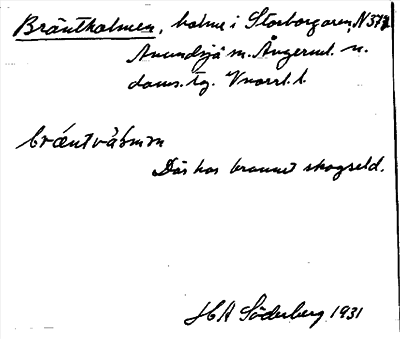 Bräntholmen, holme i Storborgaren, N 372
Anundsjö sn. Ångerml. n.
doms. tg. Vnorrl. l.
bräntvålmm
Där har brunnet skogseld.
H A Söderberg 1931